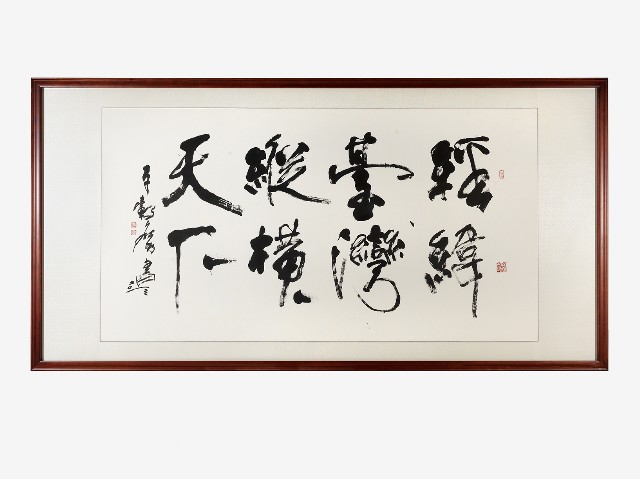 經緯
臺灣
縱橫
天下